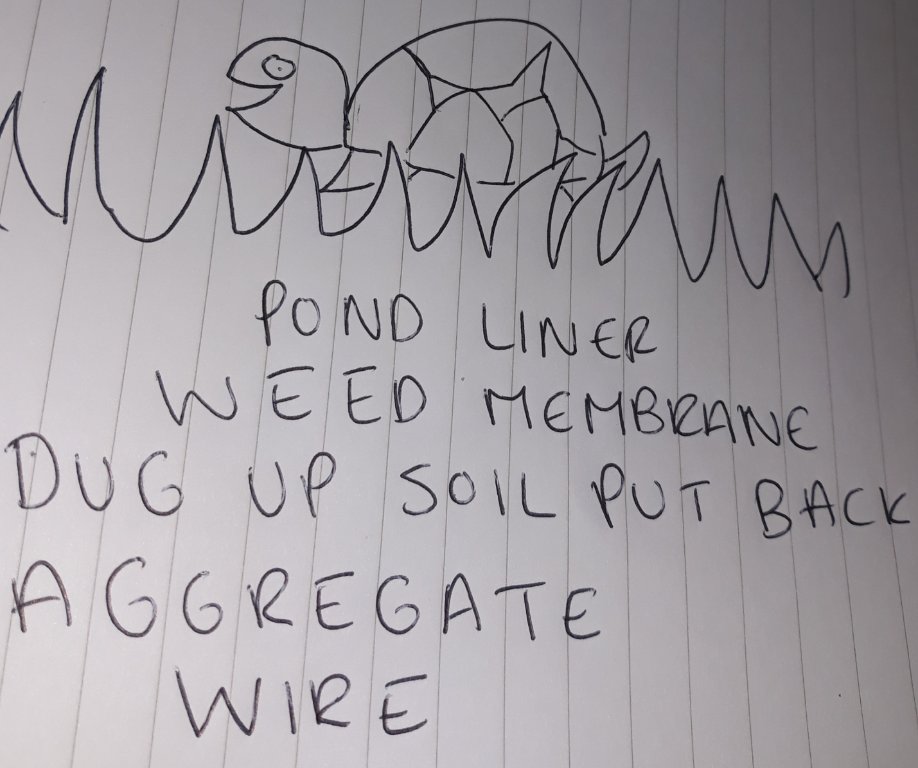 POND LINER
WEED MEMBRANE
DUG UP SOIL PUT BACK
AGGREGATE
WIRE